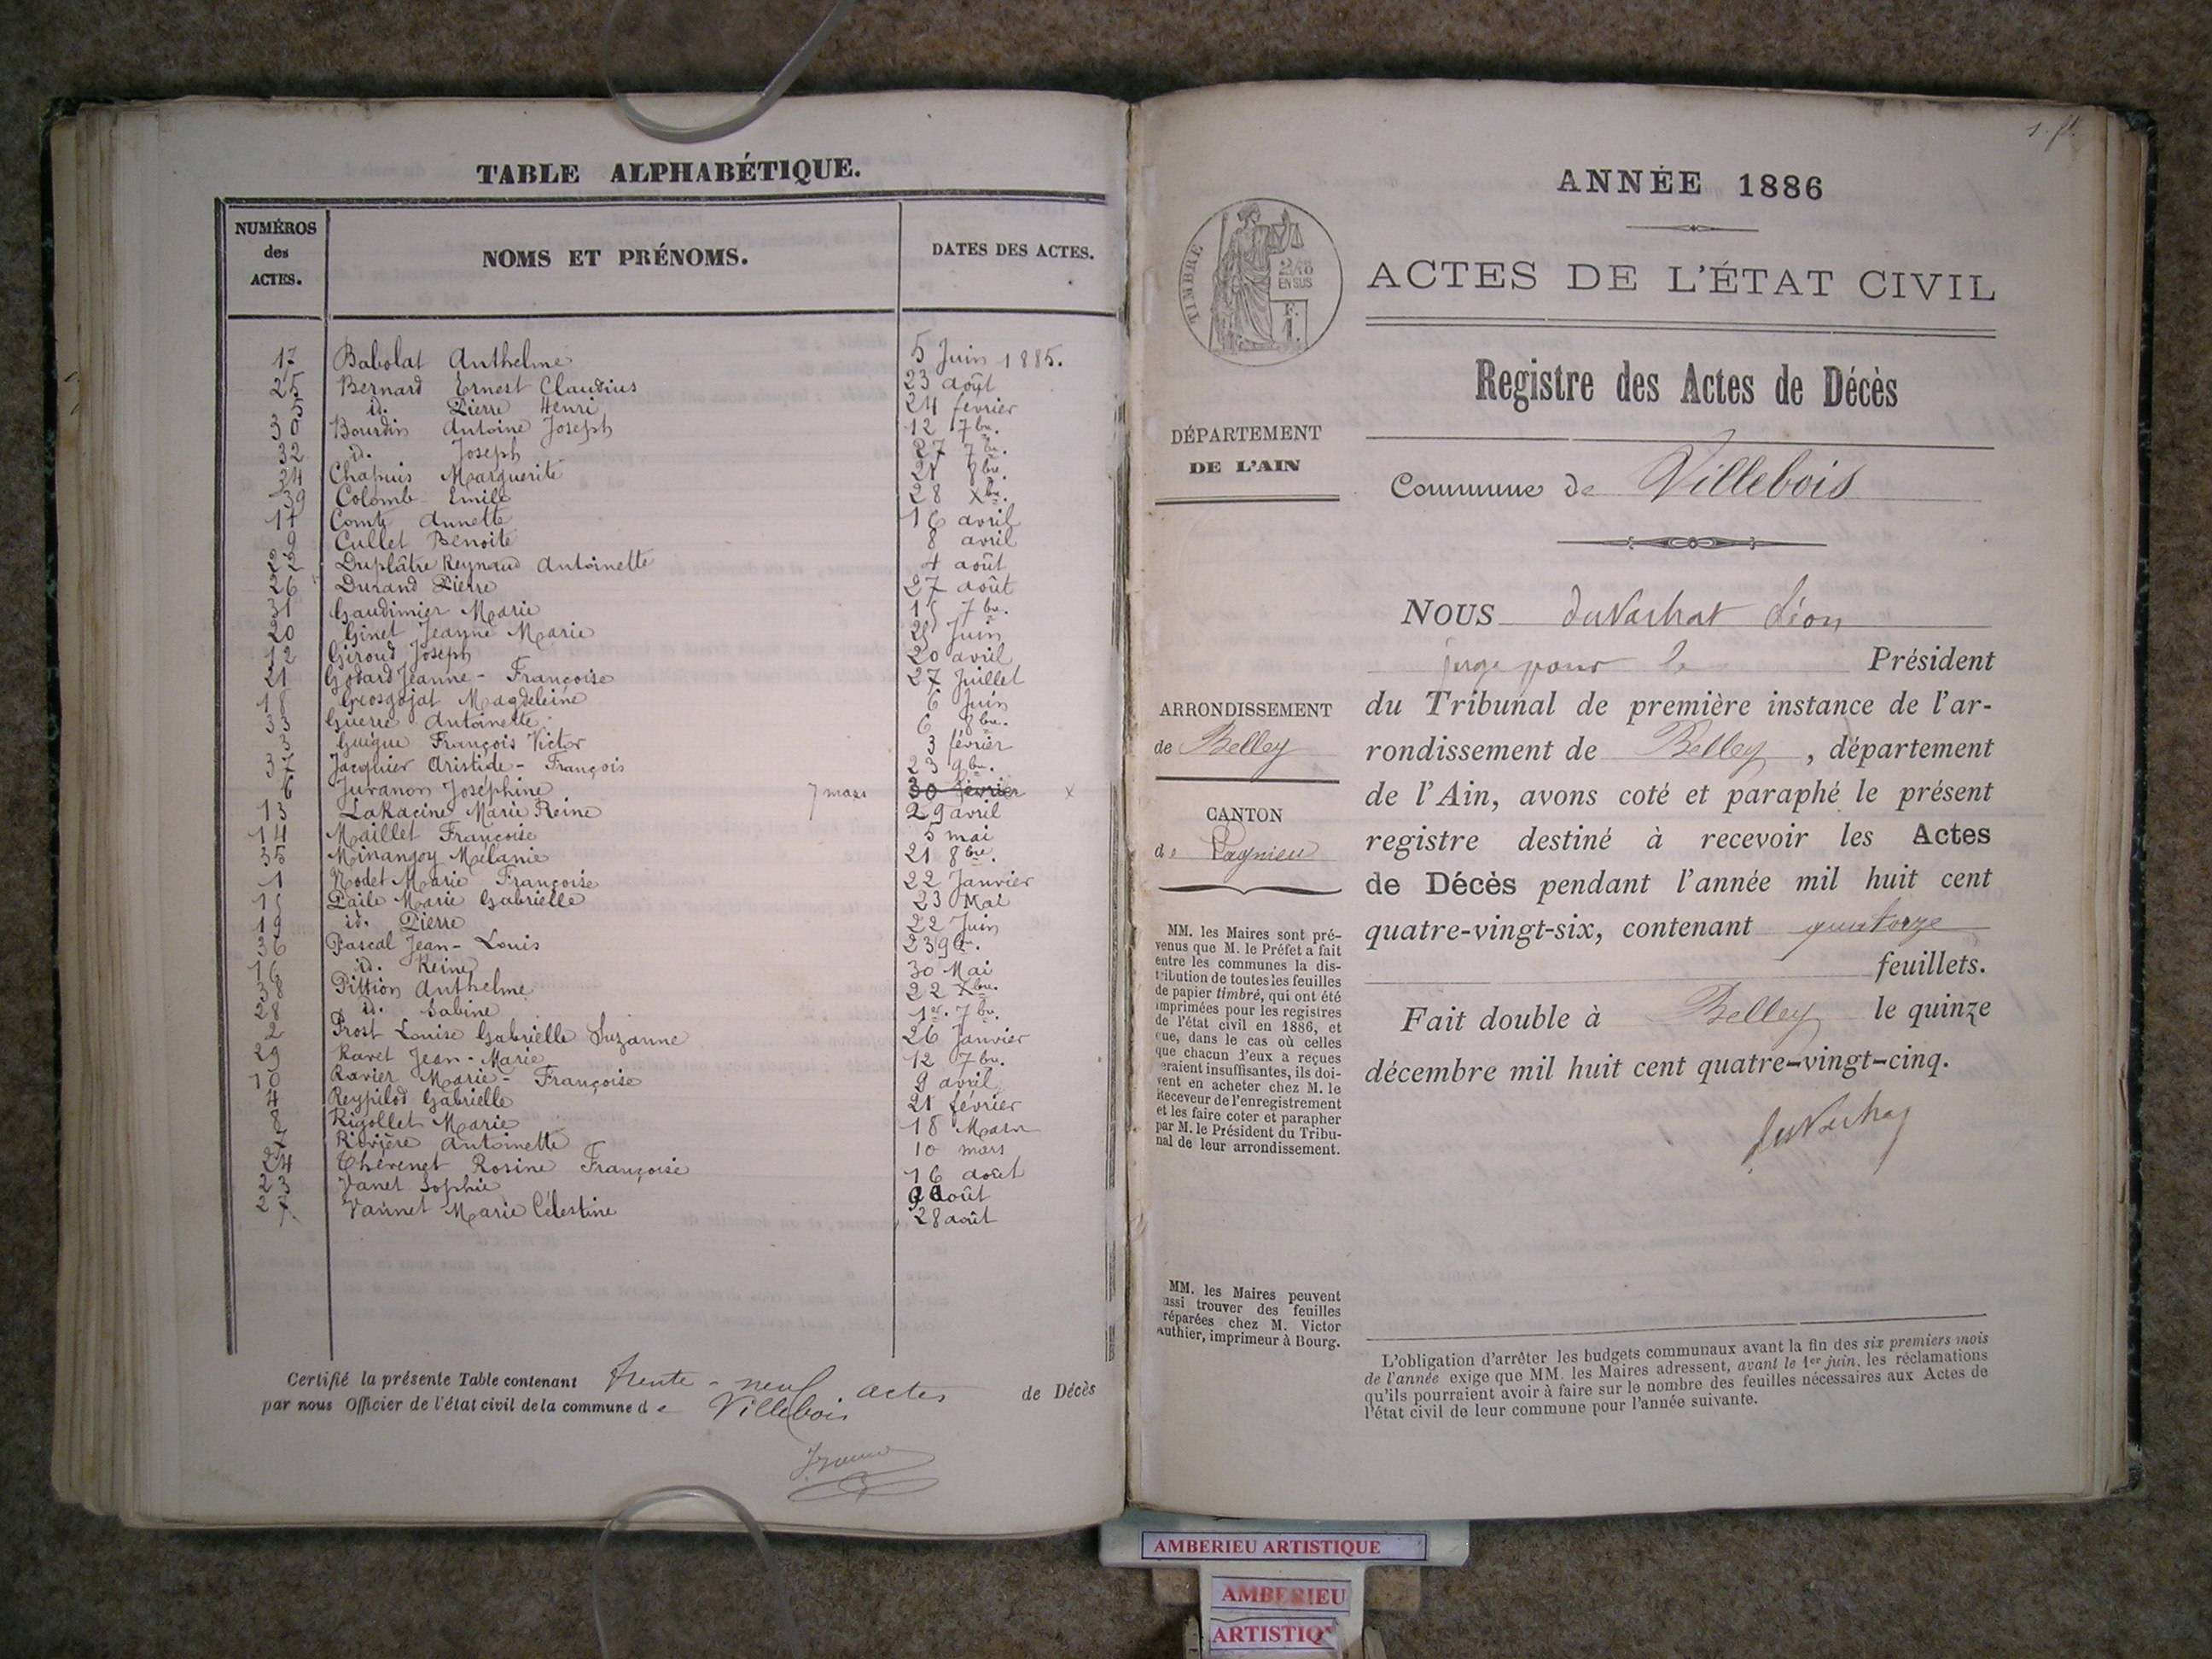 TABLE ALPHABÉTIQUE.
NUMÉROS des ACTES. NOMS ET PRÉNOMS. DATES DES ACTES.
17 Babolat Anthelme 5 Juin 1885.
25 Bernard Ernest Claudius 23 août
5 id. Pierre Henri 24 février
30 Bourdin Antoine Joseph 12 7bre.
32 id. Joseph 27 7bre.
34 Chapuis Marguerite 21 8bre.
39 Colomb Emile 28 Xbre.
11 Comte Annette 16 avril
9 Cullet Benoite 8 avril
22 Duplâtre Reynaud Antoinette 4 août
26 Durand Pierre 27 août
31 Gaudimier Marie 7bre.
20 Ginet Jeanne Marie 25 Juin
12 Giroud Joseph 20 avril
21 Godard Jeanne - Françoise 27 Juillet
18 Grosgojat Magdeleine 6 Juin
33 Guerre Antoinette 6 8bre.
3 Guigue François Victor 3 février
37 Jacquier Aristide - François 23 9bre.
6 Juvanon Joséphine 7 mars 30 février x
13 LaRacine Marie Reine 29 avril
14 Maillet Françoise 5 mai
35 Minangoy Mélanie 21 8bre.
1 Nodet Marie Françoise 22 Janvier
15 Paile Marie Gabrielle 23 Mai
19 id. Pierre 22 Juin
36 Pascal Jean - Louis 23 9bre.
16 id. Reine 30 Mai
38 Pittion Anthelme 22 Xbre.
28 id. Sabine 1er. 7bre.
2 Prost Louise Gabrielle Suzanne 26 Janvier
29 Ravet Jean - Marie 12 7bre.
10 Ravier Marie - Françoise 9 avril
4 Reypilod Gabrielle 21 février
8 Rigollet Marie 18 Mars
7 Rivière Antoinette 10 mars
24 Thévenet Rosine Françoise 16 août
23 Vanet Sophie 9 août
27 Vannet Marie Célestine 28 août
Certifié la présente Table contenant trente - neuf actes de Décès
par nous Officier de l'état civil de la commune de Villebois
1. f.
ANNÉE 1886
TIMBRE
2/10
EN SUS
F.
1.
ACTES DE L'ÉTAT CIVIL
Registre des Actes de Décès
DÉPARTEMENT
DE L'AIN
Commune de Villebois
NOUS Léon
juge pour le Président
du Tribunal de première instance de l'ar-
rondissement de Belley, département
de l'Ain, avons coté et paraphé le présent
registre destiné à recevoir les Actes
de Décès pendant l'année mil huit cent
quatre-vingt-six, contenant quatorze
feuillets.
Fait double à Belley le quinze
décembre mil huit cent quatre-vingt-cinq.
ARRONDISSEMENT
de Belley
CANTON
de Lagnieu
MM. les Maires sont pré-
venus que M. le Préfet a fait
entre les communes la dis-
tribution de toutes les feuilles
de papier timbré, qui ont été
imprimées pour les registres
de l'état civil en 1886, et
que, dans le cas où celles
que chacun d'eux a reçues
seraient insuffisantes, ils doi-
vent en acheter chez M. le
Receveur de l'enregistrement
et les faire coter et parapher
par M. le Président du Tribu-
nal de leur arrondissement.
MM. les Maires peuvent
ussi trouver des feuilles
réparées chez M. Victor
Authier, imprimeur à Bourg.
L'obligation d'arrêter les budgets communaux avant la fin des six premiers mois
de l'année exige que MM. les Maires adressent, avant le 1er juin, les réclamations
qu'ils pourraient avoir à faire sur le nombre des feuilles nécessaires aux Actes de
l'état civil de leur commune pour l'année suivante.
AMBERIEU ARTISTIQUE
AMBERIEU
ARTISTIQ